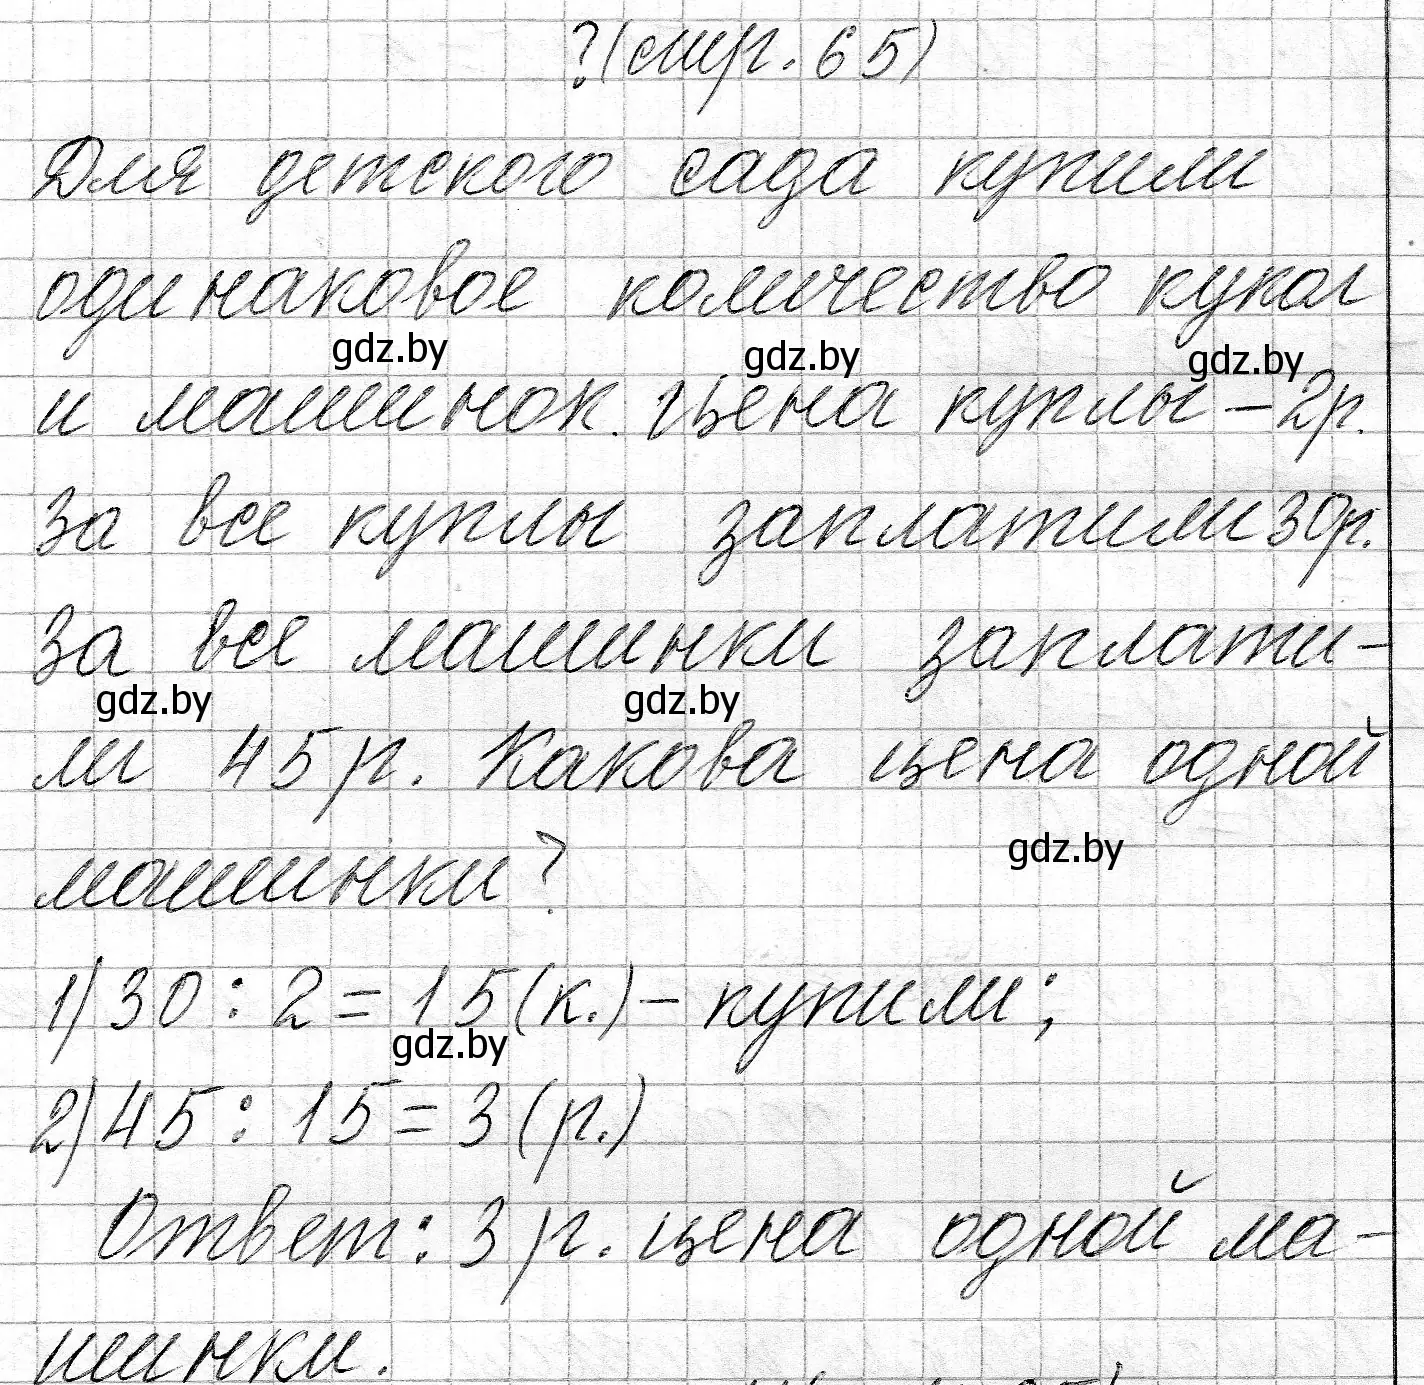 ? (стр. 65)
Для детского сада купили
одинаковое количество кукол
gdz.by gdz.by gdz.by
и машинок. Цена куклы – 2р.
За все куклы заплатили 30р.
За все машинки заплати-
gdz.by gdz.by
ли 45 р. Какова цена одной
машинки?
gdz.by
1) 30 : 2 = 15 (к.) – купили;
gdz.by
2) 45 : 15 = 3 (р.)
Ответ: 3 р. цена одной ма-
шинки.